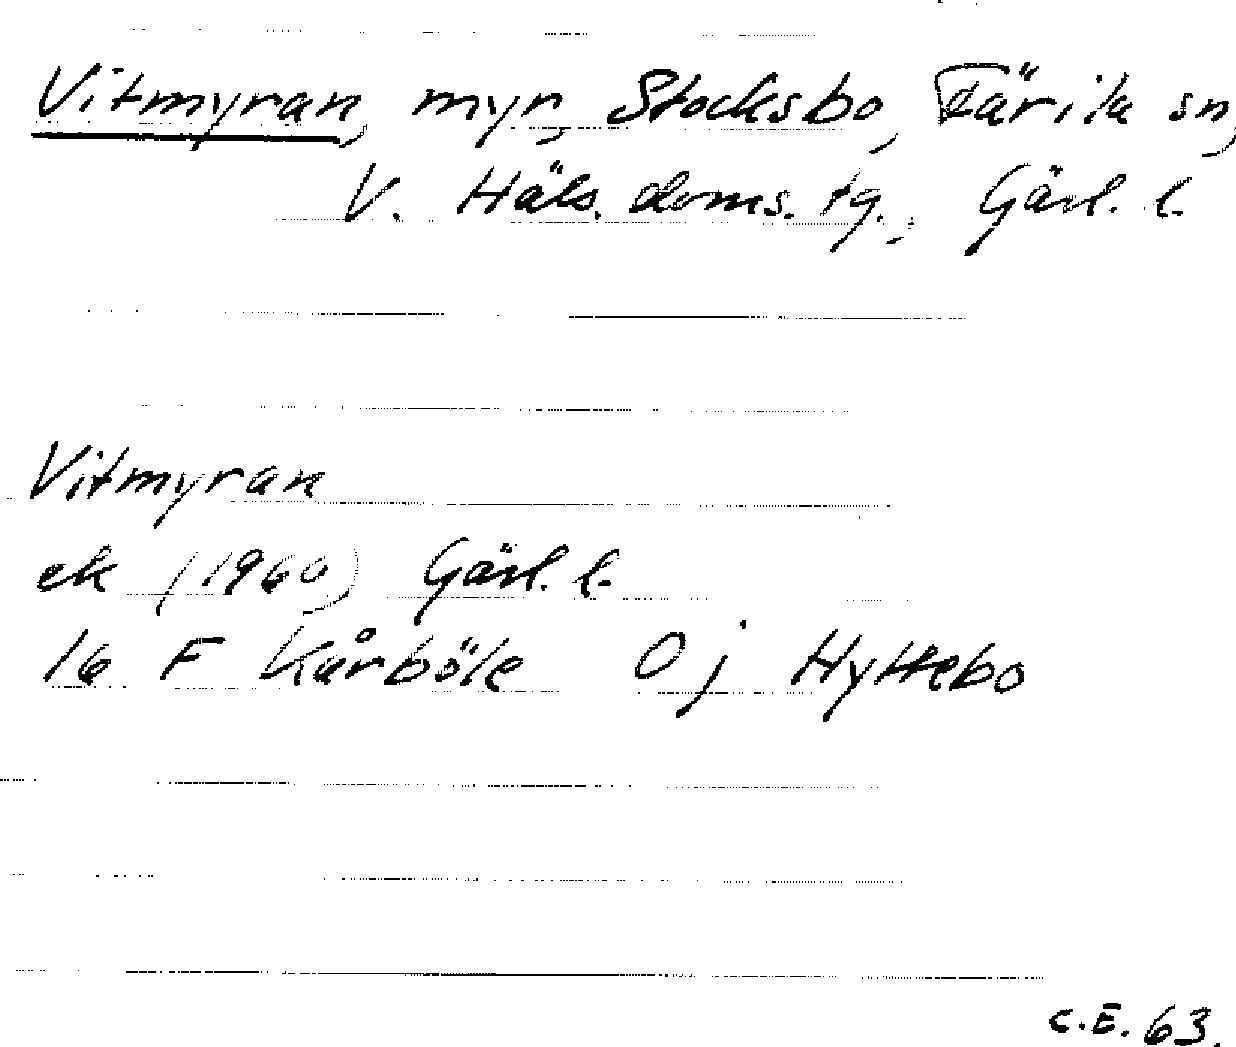 Vitmyran, myr, Stocksbo, Färila sn,
V. Häls. doms. tg., Gävl. l.
Vitmyran
ek (1960) Gävl. l.
16 F Kårböle O j Hyttebo
C.E. 63.